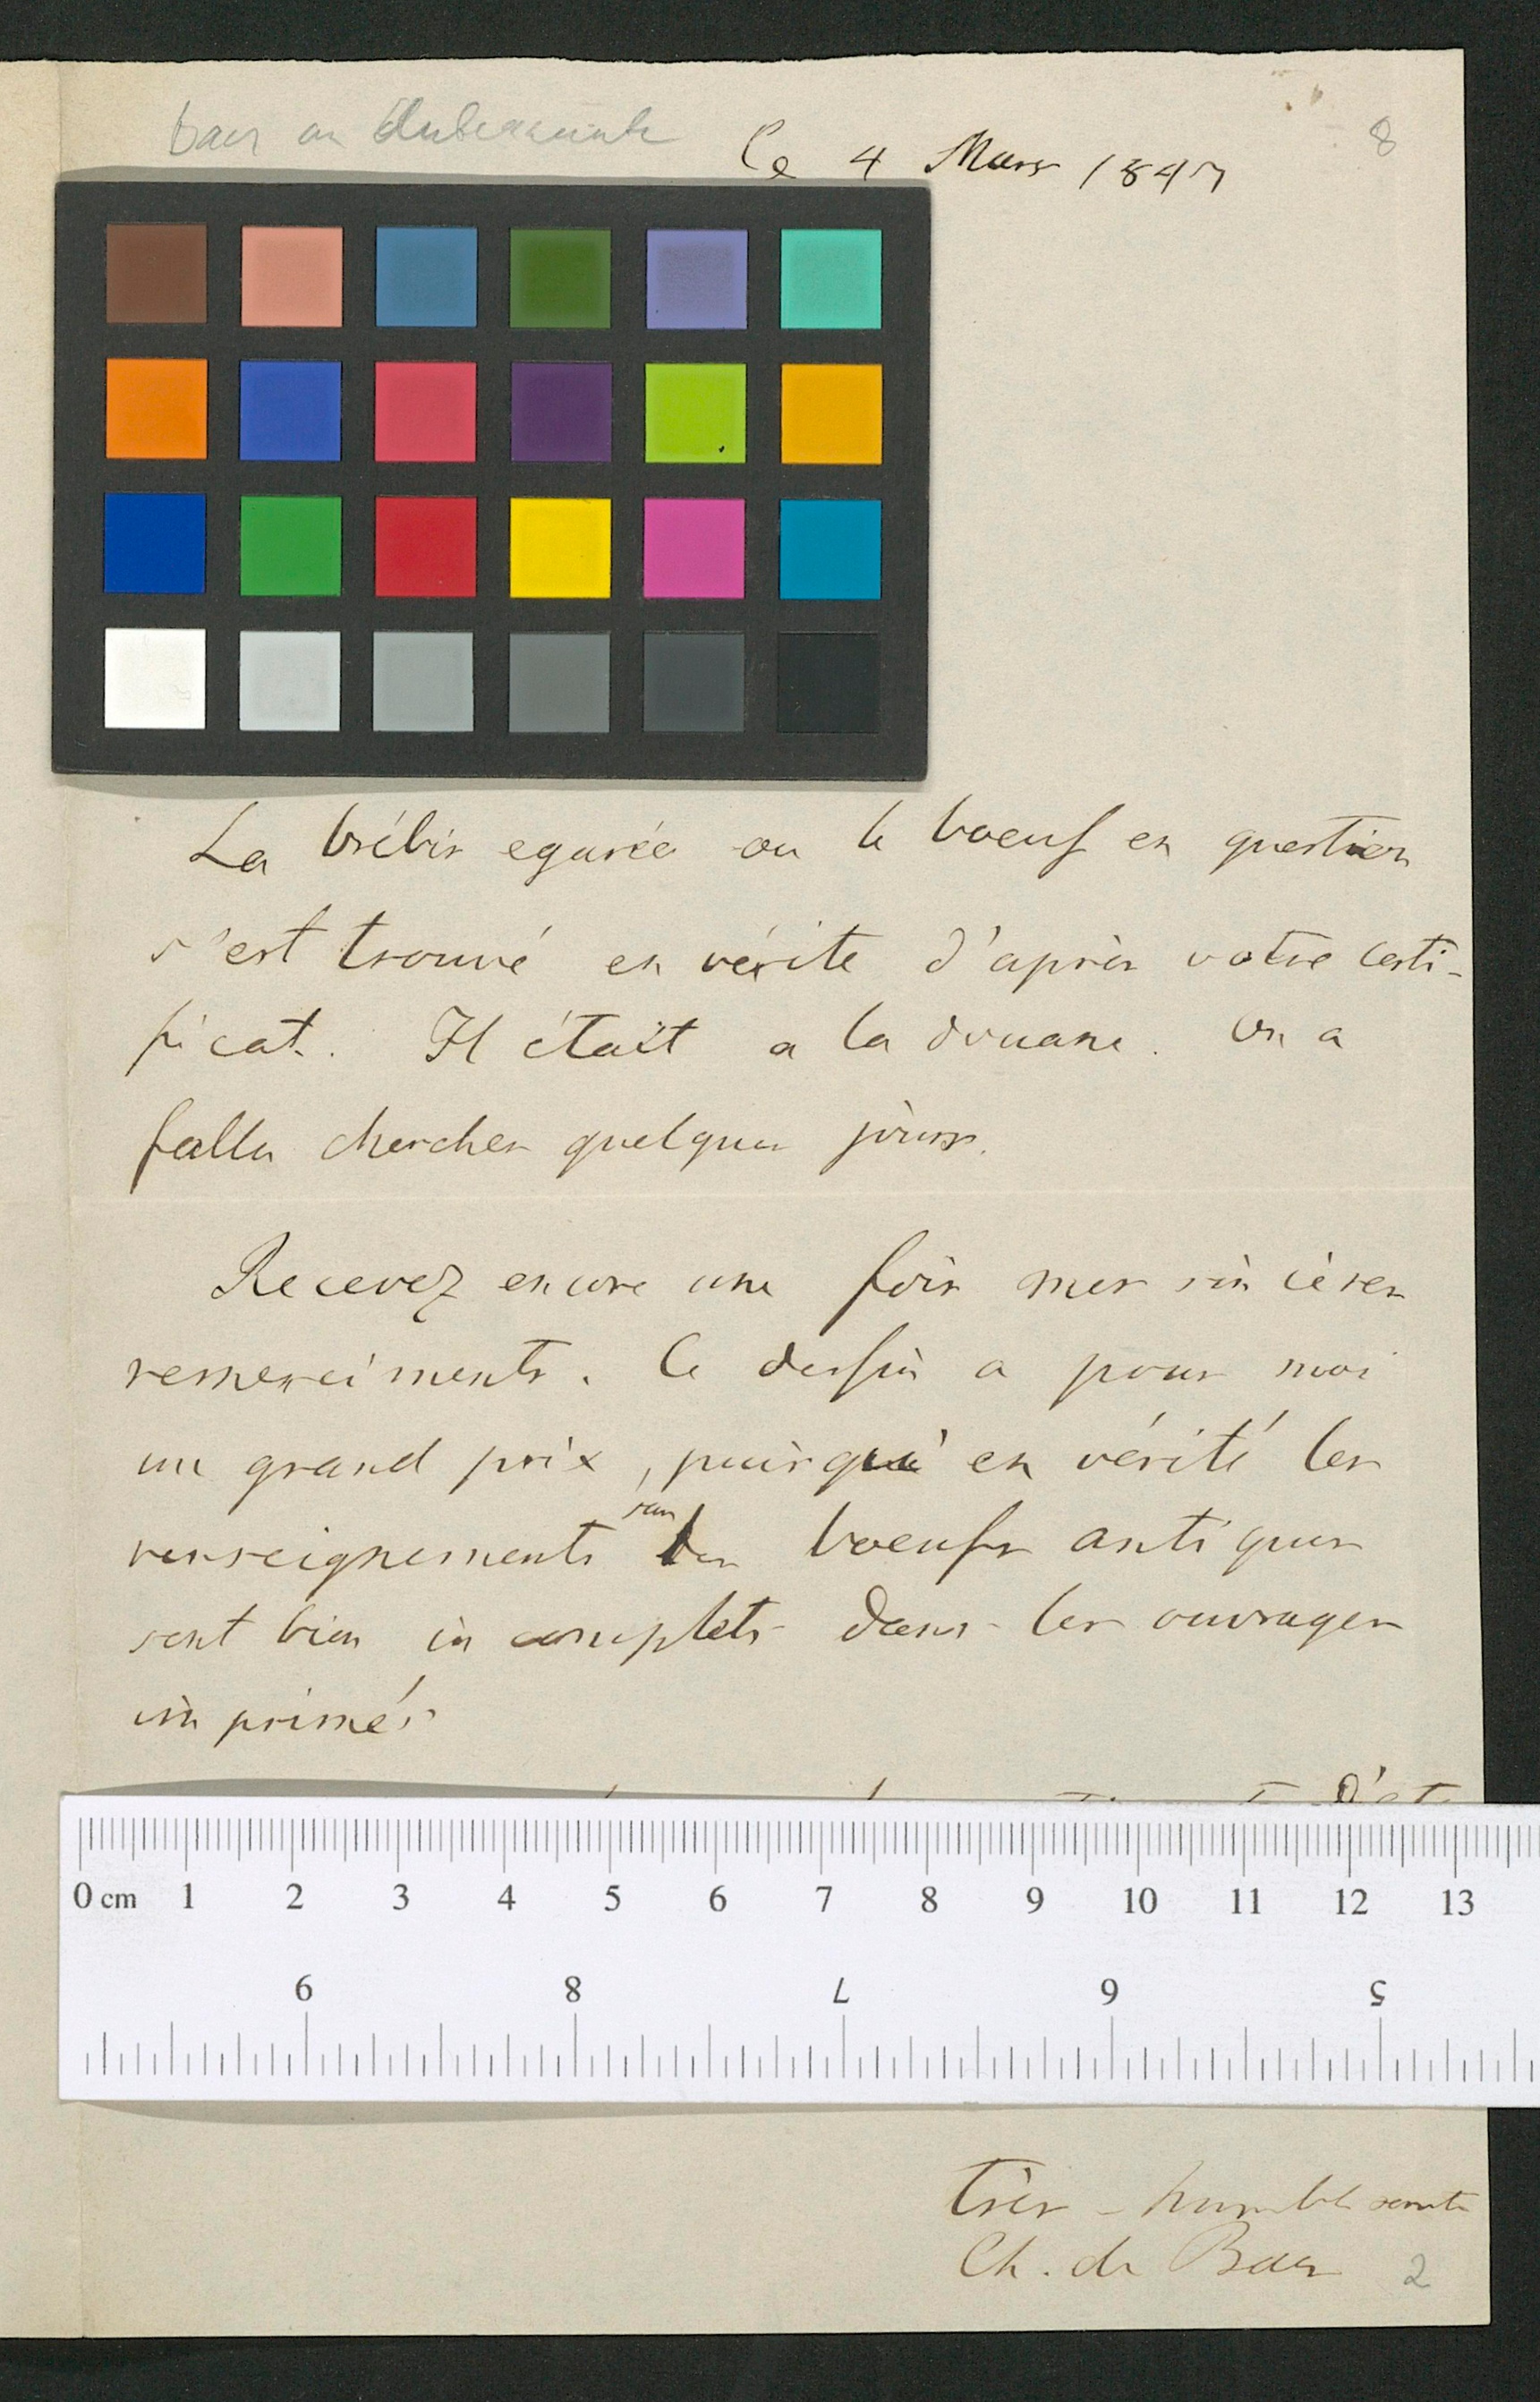 Baer an Unbekannt
Ce 4 Mars 1847
8
La brébis egarée ou le boeuf en question
s'est trouvé en vérite d'après votre certi-
ficat. Il était a la douane. On a
fallu chercher quelques jours.
Recevez encore une fois mes sincères
remerciments. Ce dessin a pour moi
un grand prix, puisque en vérité les
renseignements sur les boeufs antiques
sont bien incomplets dans les ouvrages
imprimés
0 cm 1 2 3 4 5 6 7 8 9 10 11 12 13
9 8 7 6 5
très-humble
Ch. de Baer
2